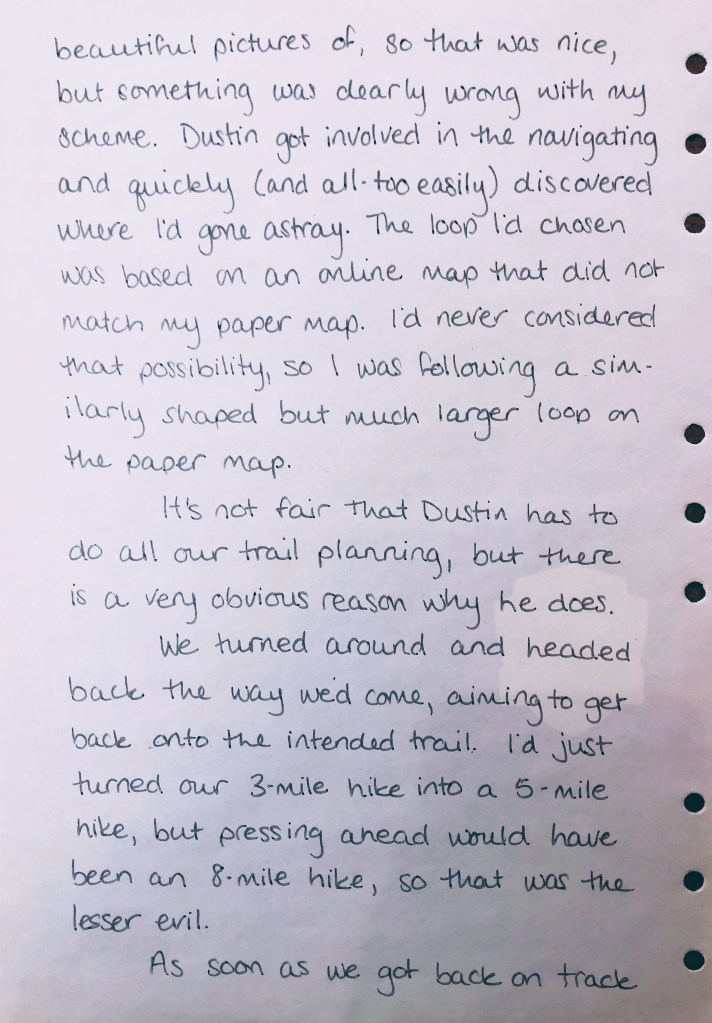 beautiful pictures of, so that was nice,
but something was clearly wrong with my
scheme. Dustin got involved in the navigating
and quickly (and all-too easily) discovered
where I'd gone astray. The loop I'd chosen
was based on an online map that did not
match my paper map. I'd never considered
that possibility, so I was following a sim-
ilarly shaped but much larger loop on
the paper map.
It's not fair that Dustin has to
do all our trail planning, but there
is a very obvious reason why he does.
We turned around and headed
back the way we'd come, aiming to get
back onto the intended trail. I'd just
turned our 3-mile hike into a 5-mile
hike, but pressing ahead would have
been an 8-mile hike, so that was the
lesser evil.
As soon as we got back on track